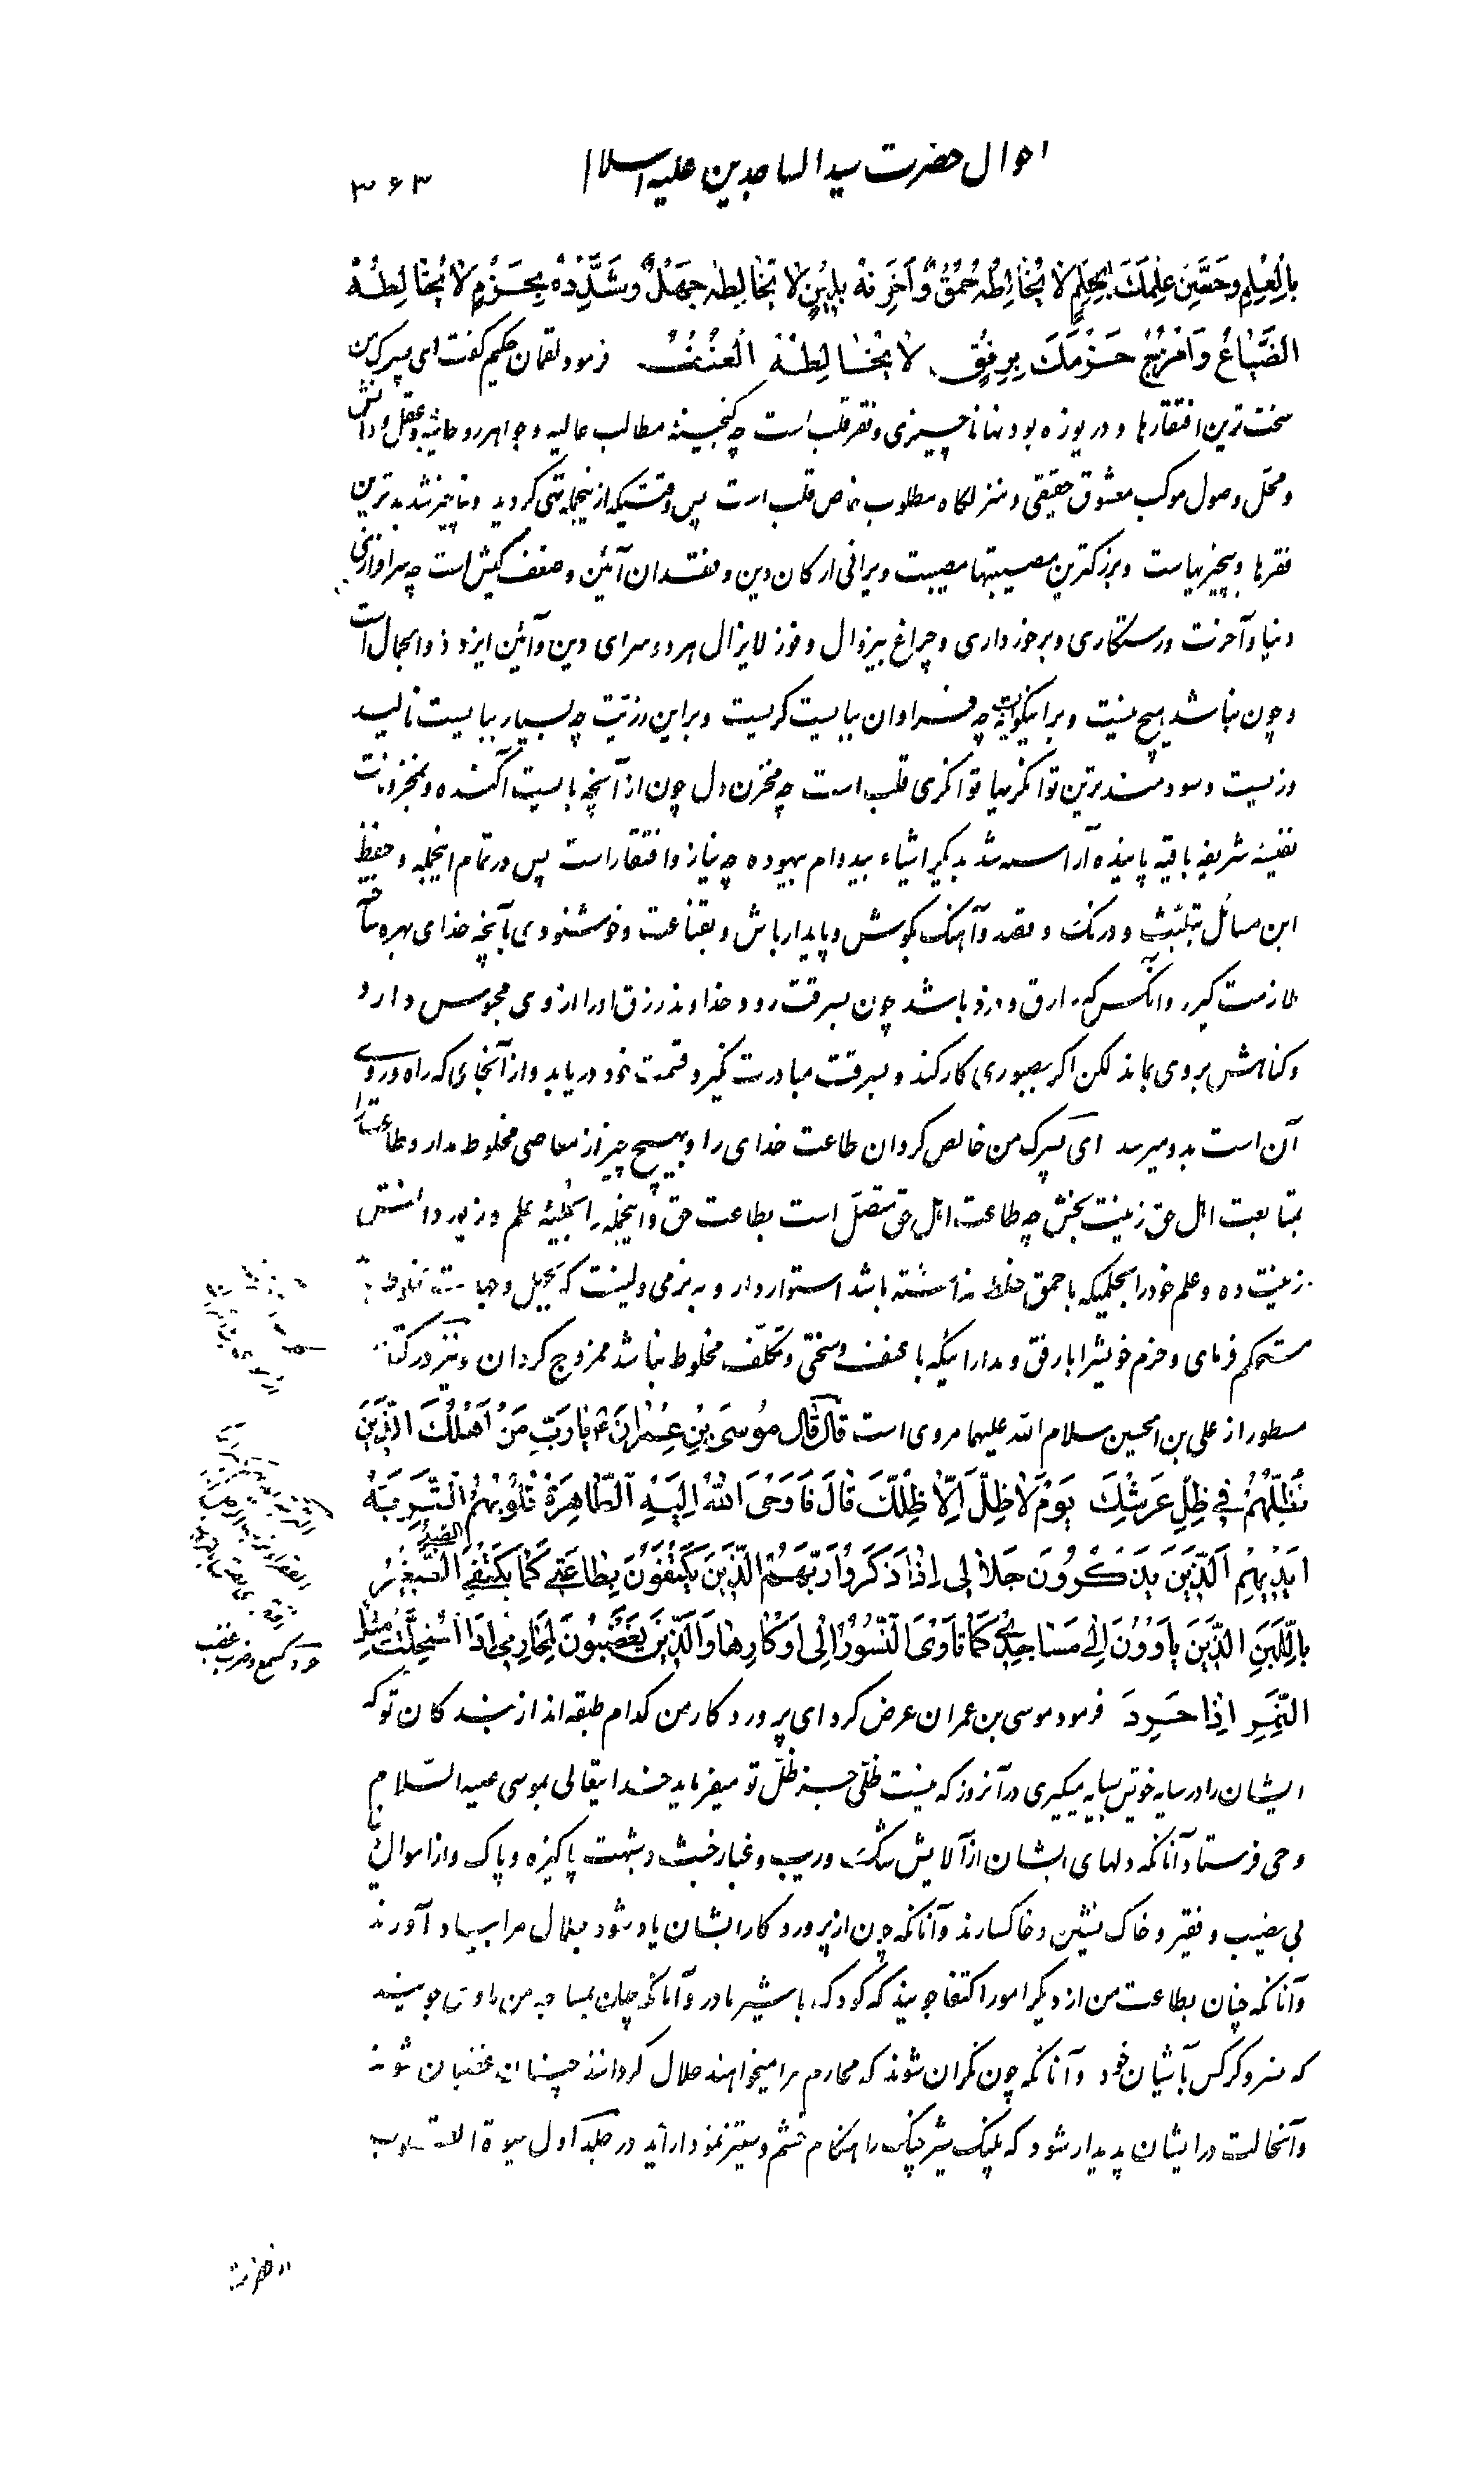 احوال حضرت سید الساجدین علیه السلام
۳۶۳
بِالْعِلْمِ وَحَصِّنْ عِلْمَكَ بِحِلْمٍ لَا يُخَالِطُهُ حُمْقٌ وَاَخْزِنْهُ بِلِينٍ لَا يُخَالِطُهُ جَهْلٌ وَشَدِّدْهُ بِحَزْمٍ لَا يُخَالِطُهُ
الضَّيَاعُ وَامْزُجْ حَزْمَكَ بِرِفْقٍ لَا يُخَالِطُهُ الْعُنْفُ فرمود لقمان حکیم گفت ای پسرک من
سخت ترین افتقارها و دریوزه بودنها ناچیزی و فقر قلب است چه گنجینه مطالب عالیه و جواهر روحانیه و عقل و دانش
و محل وصول موکب معشوق حقیقی و منزلگاه مطلوب خاص قلب است پس وقتیکه از اینجمله تهی گردید و ناچیز شد بدترین
فقرها و بیچیزیهاست و بزرگترین مصیبتها مصیبت ویرانی ارکان دین و فقدان آئین و ضعف کیش است چه سرافرازی
دنیا و آخرت و رستگاری و برخورداری و چراغ بیزوال و فوز لایزال هر دو سرای دین و آئین ایزد ذوالجمال است
و چون نباشد هیچ نیست و براینگونه چه فراوان ببایست گریست و براین رزیّت چه بسیار ببایست نالید
و زیست و سودمندترین توانگریها توانگری قلب است چه مخزن دل چون از آنچه بایست آکنده و بمخزونات
نفیسه شریفه باقیه پاینده آراسته شد بدیگر اشیاء بیدوام بیهوده چه نیاز و افتقار است پس در تمام اینجمله و حفظ
این مسائل تبلبّث و درنگ و قصد و آهنگ بکوش و پایدار باش و بقناعت و خوشنودی بآنچه خدای بهره ساخته
ملازمت گیر و آنکس که سارق و دزد باشد چون بسرقت رود خداوند رزق او را از وی محبوس دارد
و گناهش بر وی بماند لکن اگر بصبوری کار کند و بسرقت مبادرت نگیرد قسمت خود دریابد و از آنجای که راه و روی
آن است بدو میرسد ای پسرک من خالص گردان طاعت خدای را و بهیچ چیز از معاصی مخلوط مدار و طاعت را
بمتابعت اهل حق زینت بخش چه طاعت اهل حق متصل است بطاعت حق و اینجمله را بحلیهٔ علم و زیور دانش
زینت ده و علم خود را بحلمیکه با حمق خلط نداشته باشد استوار دار و به نرمی و لینت که بجهل و
مستحکم فرمای و حزم خویش را با رفق و مدارائیکه با عنف و سختی و تکلّف مخلوط نباشد ممزوج گردان و نیز در کتاب
مسطور از علی بن الحسین سلام الله علیهما مروی است قَالَ قَالَ مُوسَى بْنُ عِمْرَانَ ع يَا رَبِّ مَنْ اَهْلُكَ الَّذِينَ
تُظِلُّهُمْ فِي ظِلِّ عَرْشِكَ يَوْمَ لَا ظِلَّ اِلَّا ظِلُّكَ قَالَ فَاَوْحَى اللهُ اِلَيْهِ الطَّاهِرَةُ قُلُوبُهُمُ التَّرِبَةُ
اَيْدِيهِمِ الَّذِينَ يَذْكُرُونَ جَلَالِي اِذَا ذَكَرُوا رَبَّهُمُ الَّذِينَ يَكْتَفُونَ بِطَاعَتِي كَمَا يَكْتَفِي الصَّغِيرُ
بِاللَّبَنِ الَّذِينَ يَاْوُونَ اِلَى مَسَاجِدِي كَمَا تَاْوَى النُّسُورُ اِلَى اَوْكَارِهَا وَالَّذِينَ يَغْضَبُونَ لِمَحَارِمِي اِذَا اسْتُحِلَّتْ مِثْلَ
النَّمِرِ اِذَا حَرِدَ فرمود موسی بن عمران عرض کرد ای پروردگار من کدام طبقه‌اند از بندگان تو که
ایشان را در سایه خویش سایه میگیری در آنروز که نیست ظلّی جز ظلّ تو میفرماید خدایتعالی بموسی علیه السّلام
وحی فرستاد آنانکه دلهای ایشان از آلایش شک و ریب و غبار خبث و شبهت پاکیزه و پاک و از اموال
بی نصیب و فقیر و خاک نشین و خاکسارند و آنانکه چون از پروردگار ایشان یاد شود جلال مرا بیاد آورند
و آنانکه چنان بطاعت من از دیگر امور اکتفا جویند که کودک با شیر مادر و آنانکه چنان بمساجد من ماوی جویند
که نسر و کرکس بآشیان خود و آنانکه چون نگران شوند که محارم مرا میخواهند حلال گردانند چنان غضبان شوند
و آنحالت در ایشان پدیدار شود که پلنگ تیز چنگ را هنگام خشم و ستیز نمودار آید در جلد اول حیوة القلوب
حرد کسمع و ضرب غضب